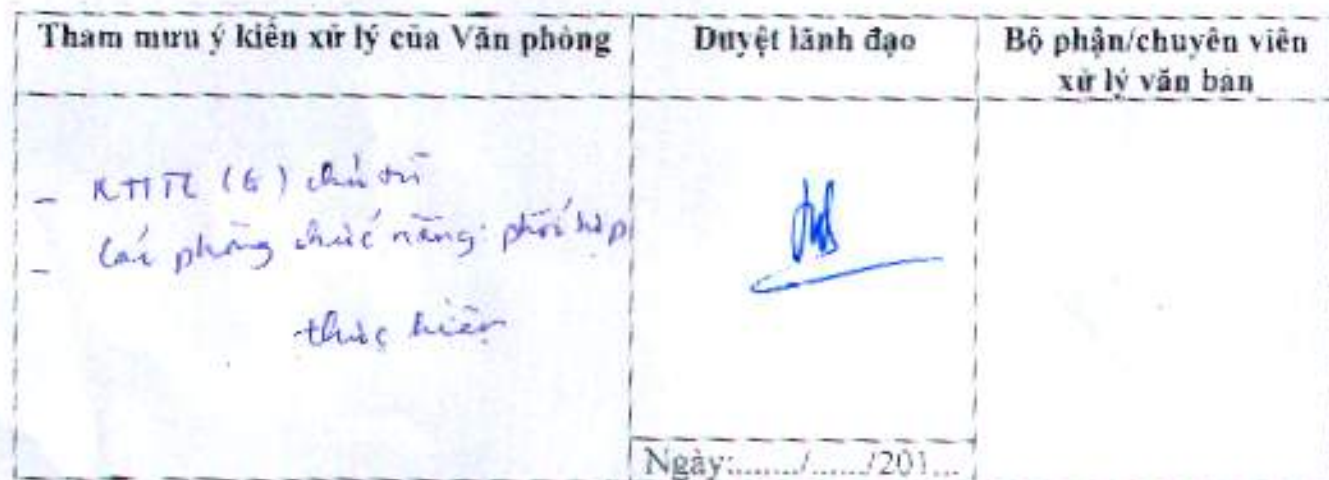 Tham mưu ý kiến xử lý của Văn phòng
Duyệt lãnh đạo
Bộ phận/chuyên viên
xử lý văn bản
- chủ trì
- Các phòng chức năng: phối hợp
thực hiện
Ngày:......./......./201...